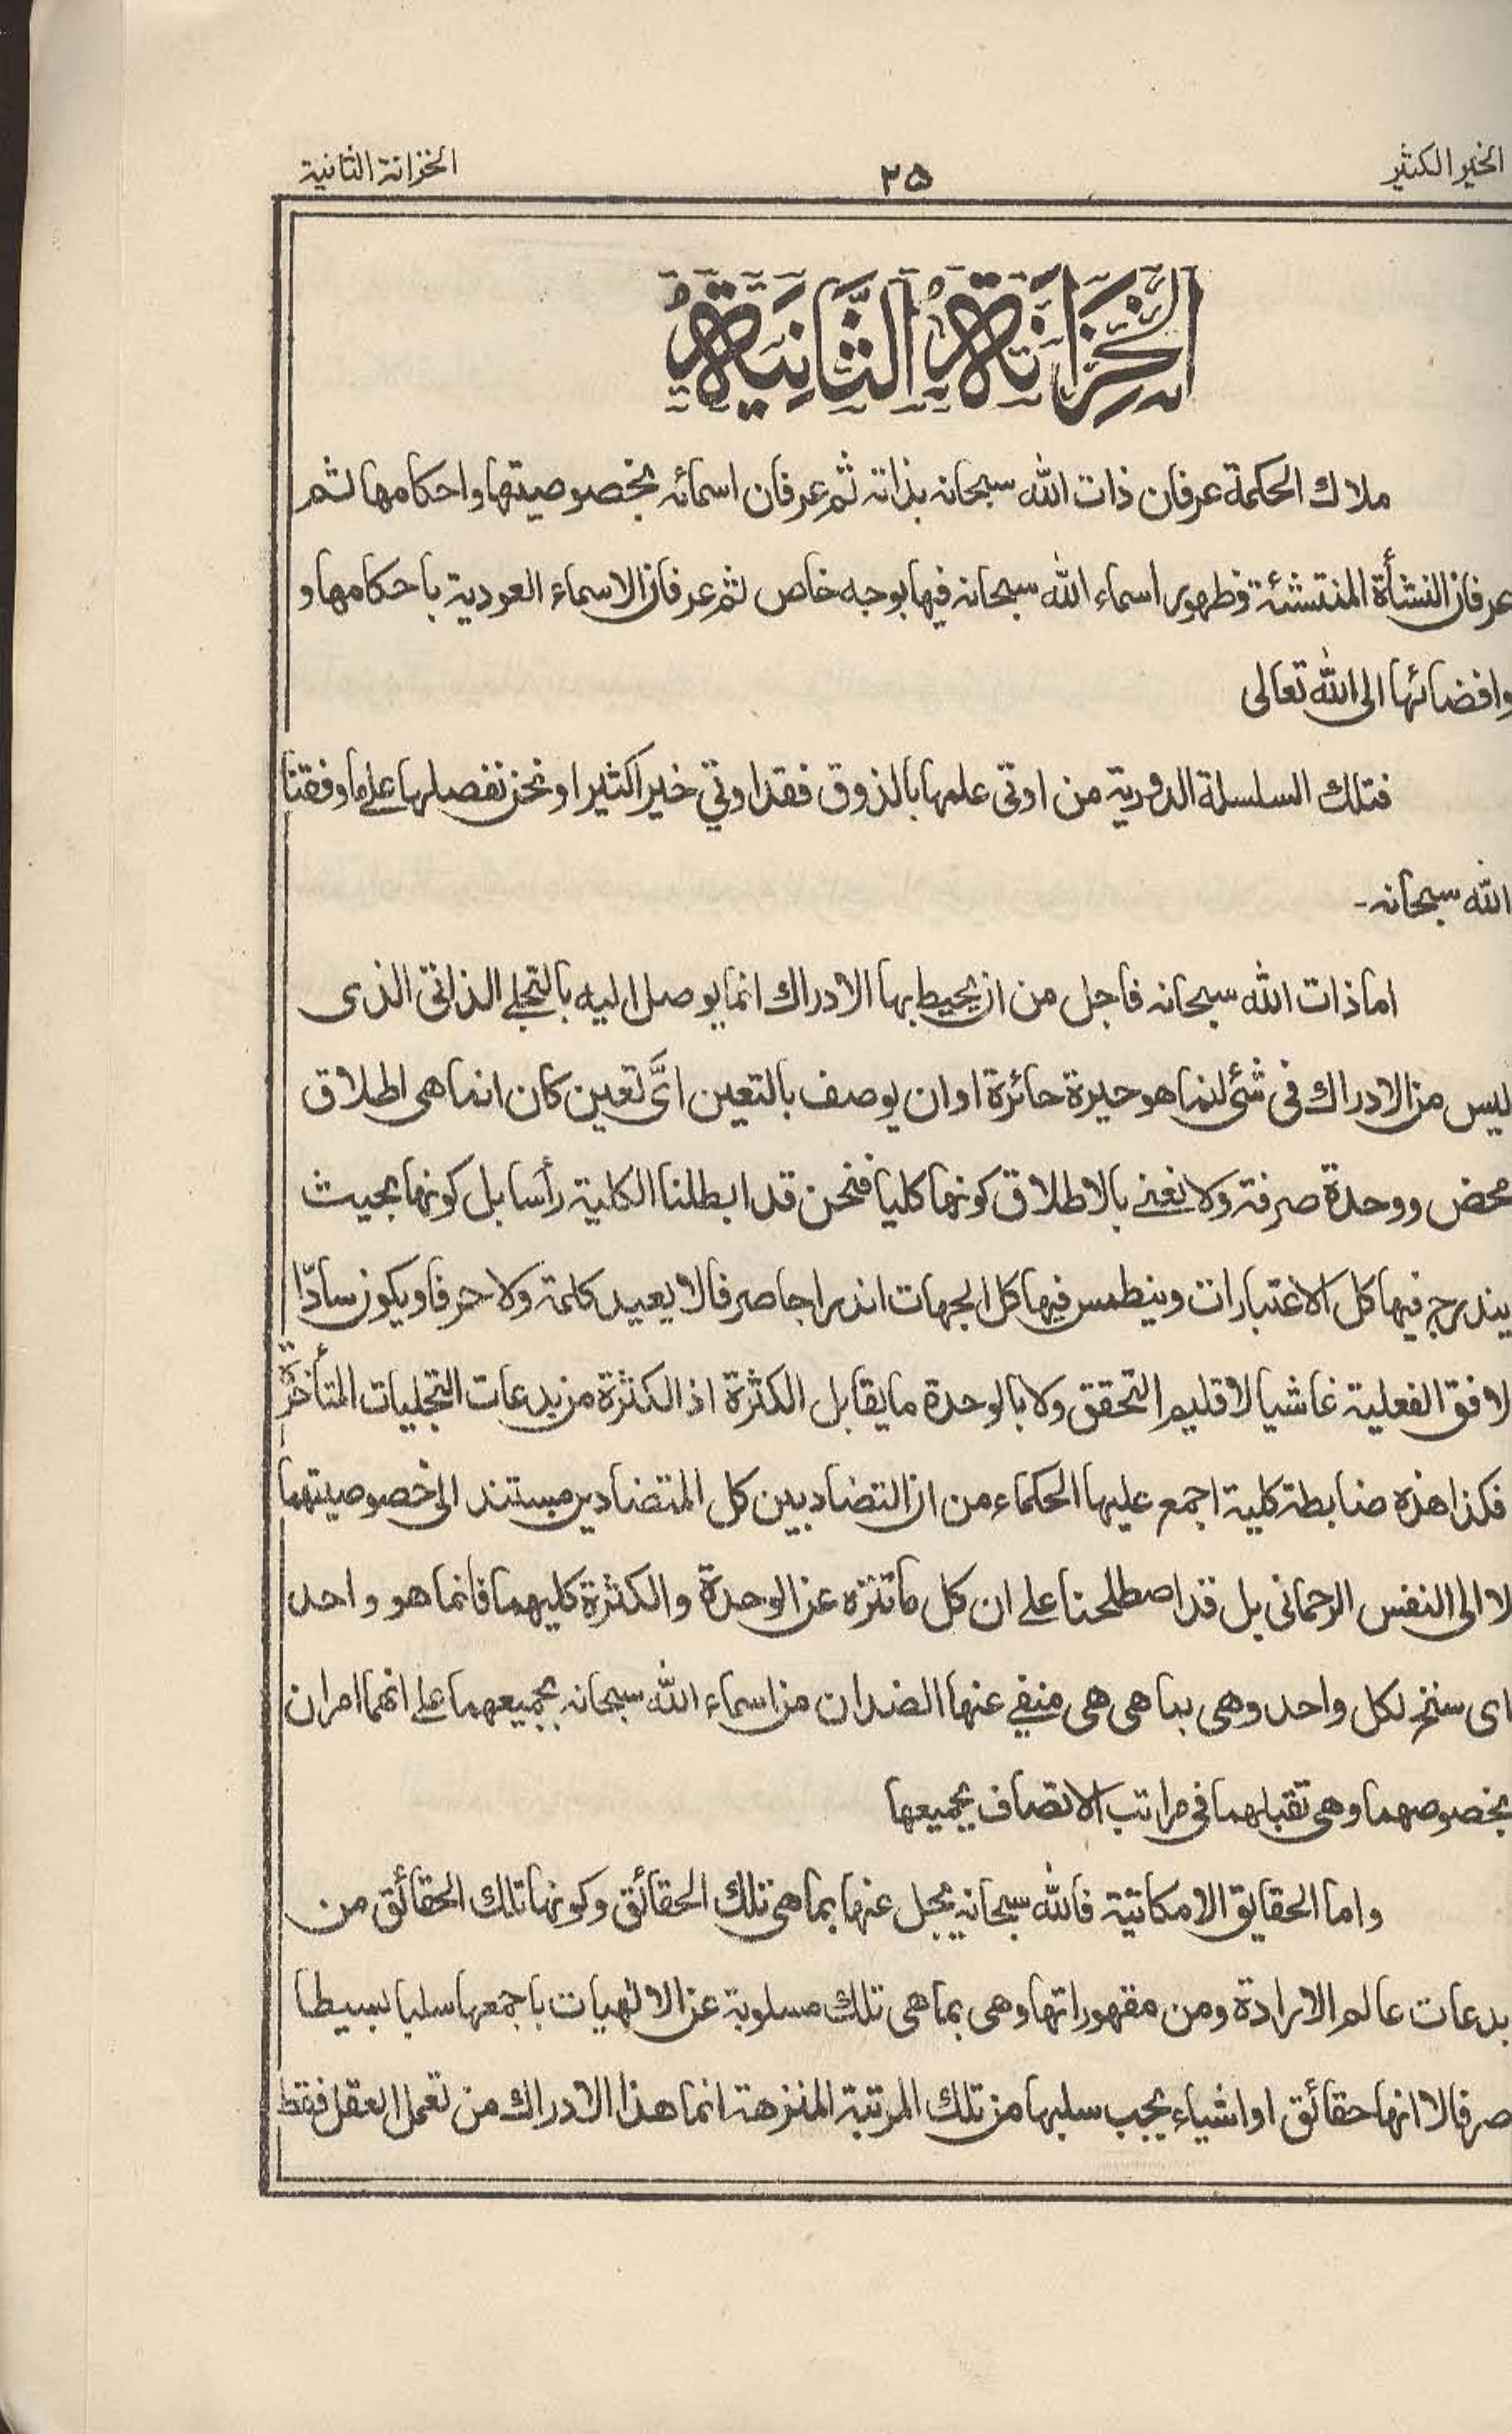 الخير الكثير ٢٥ الخزانة الثانية
الخِزَانَةُ الثَّانِيَةُ
ملاك الحكمة عرفان ذات الله سبحانه بذاته ثم عرفان اسمائه بخصوصيتها واحكامها ثم
عرفان النشأة المنتشئة وظهور اسماء الله سبحانه فيها بوجه خاص ثم عرفان الاسماء العودية باحكامها و
وافضائها الى الله تعالى
فتلك السلسلة الدورية من اوتى علمها بالذوق فقد اوتي خيرا كثيرا ونحن نفصلها على ما وفقنا
الله سبحانه-
اما ذات الله سبحانه فاجل من ان يحيط بها الادراك انما يوصل اليه بالتجلے الذاتى الذى
ليس من الادراك فى شئ انما هو حيرة حائرة او ان يوصف بالتعين اىَّ تعين كان انما هى اطلاق
محض ووحدة صرفة ولا نعنے بالاطلاق كونها كليا فنحن قد ابطلنا الكلية رأسا بل كونها بحيث
يندرج فيها كل الاعتبارات وينطمس فيها كل الجهات اندراجا صرفا لا يعيد كلمة ولا حرفا ويكون سادّا
لافق الفعلية غاشيا لاقليم التحقق ولا بالوحدة ما يقابل الكثرة اذ الكثرة من بدعات التجليات المتأخرة
فكذا هذه ضابطة كلية اجمع عليها الحكماء من ان التضاد بين كل المتضادين مستند الى خصوصيتهما
لا الى النفس الرحمانى بل قد اصطلحنا على ان كل ما تنزه عن الوحدة والكثرة كليهما فانما هو واحد
اى سنخ لكل واحد وهى بما هى هى منفے عنها الضدان من اسماء الله سبحانه بجميعهما على انهما امران
بخصوصهما وهى تقبلهما فى مراتب الاتصاف بجميعها
واما الحقايق الامكانية فالله سبحانه يجل عنها بما هى تلك الحقائق وكونها تلك الحقائق من
بدعات عالم الارادة ومن مقهوراتها وهى بما هى تلك مسلوبة عن الالهيات باجمعها سلبا بسيطا
صرفا لا انها حقائق او اشياء يجب سلبها من تلك المرتبة المنزهة انما هذا الادراك من تعمل العقل فقط